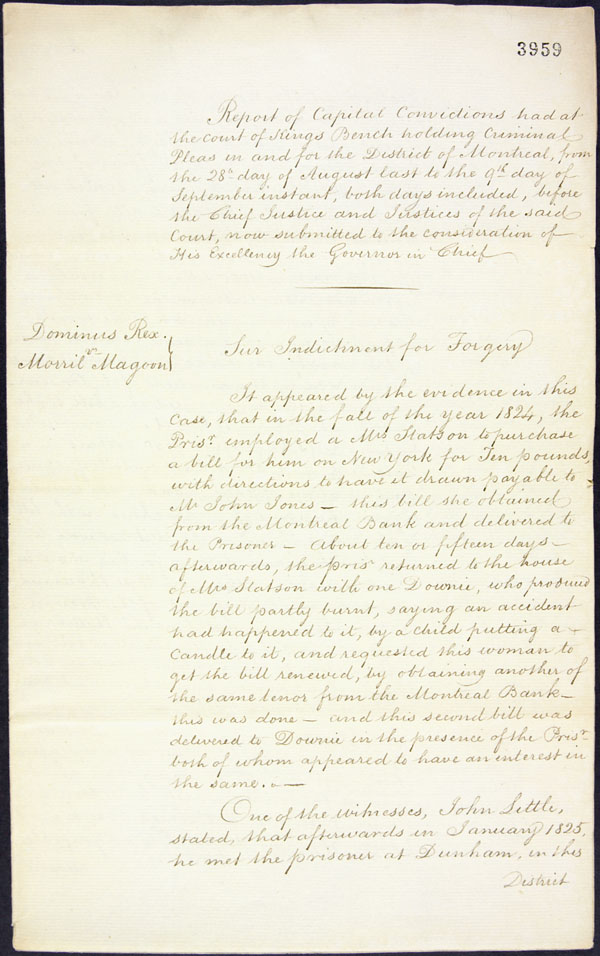 3959
Report of Capital Convictions had at
the court of Kings Bench holding Criminal
Pleas in and for the District of Montreal, from
the 28th day of August last to the 9th day of
September instant, both days included, before
the Chief Justice and Justices of the said
Court, now submitted to the consideration of
His Excellency the Governor in Chief
Dominus Rex.
vs
Morril Magoon
Sur Indictment for Forgery
It appeared by the evidence in this
case, that in the fall of the year 1824, the
Prisr. employed a Mrs Statson to purchase
a bill for him on New York for Ten pounds,
with directions to have it drawn payable to
Mr John Jones — this bill she obtained
from the Montreal Bank and delivered to
the Prisoner — About ten or fifteen days
afterwards, the prisr returned to the house
of Mrs Statson with one Downie, who produced
the bill partly burnt, saying an accident
had happened to it, by a child putting a
candle to it, and requested this woman to
get the bill renewed, by obtaining another of
the same tenor from the Montreal Bank —
this was done — and this second bill was
delivered to Downie in the presence of the Prisr.
both of whom appeared to have an interest in
the same. —
One of the witnesses, John Little,
stated, that afterwards in January 1825,
he met the prisoner at Dunham, in this
District